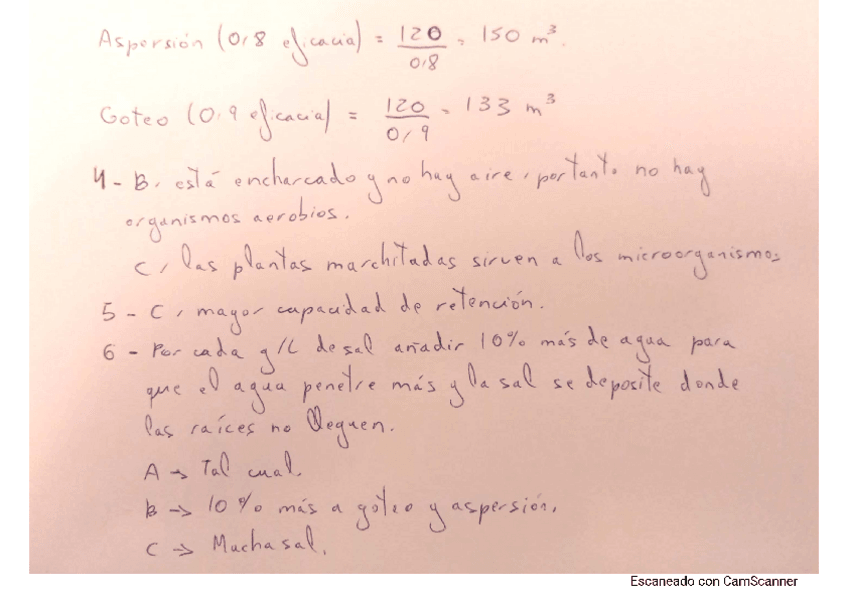 Aspersión (0,8 eficacia) = 120/0,8 = 150 m³.
Goteo (0,9 eficacia) = 120/0,9 = 133 m³
4 - B, está encharcado y no hay aire, por tanto no hay
organismos aerobios.
C, las plantas marchitadas sirven a los microorganismos
5 - C, mayor capacidad de retención.
6 - Por cada g/L de sal añadir 10% más de agua para
que el agua penetre más y la sal se deposite donde
las raíces no lleguen.
A → Tal cual.
B → 10% más a goteo y aspersión.
C → Mucha sal.
Escaneado con CamScanner